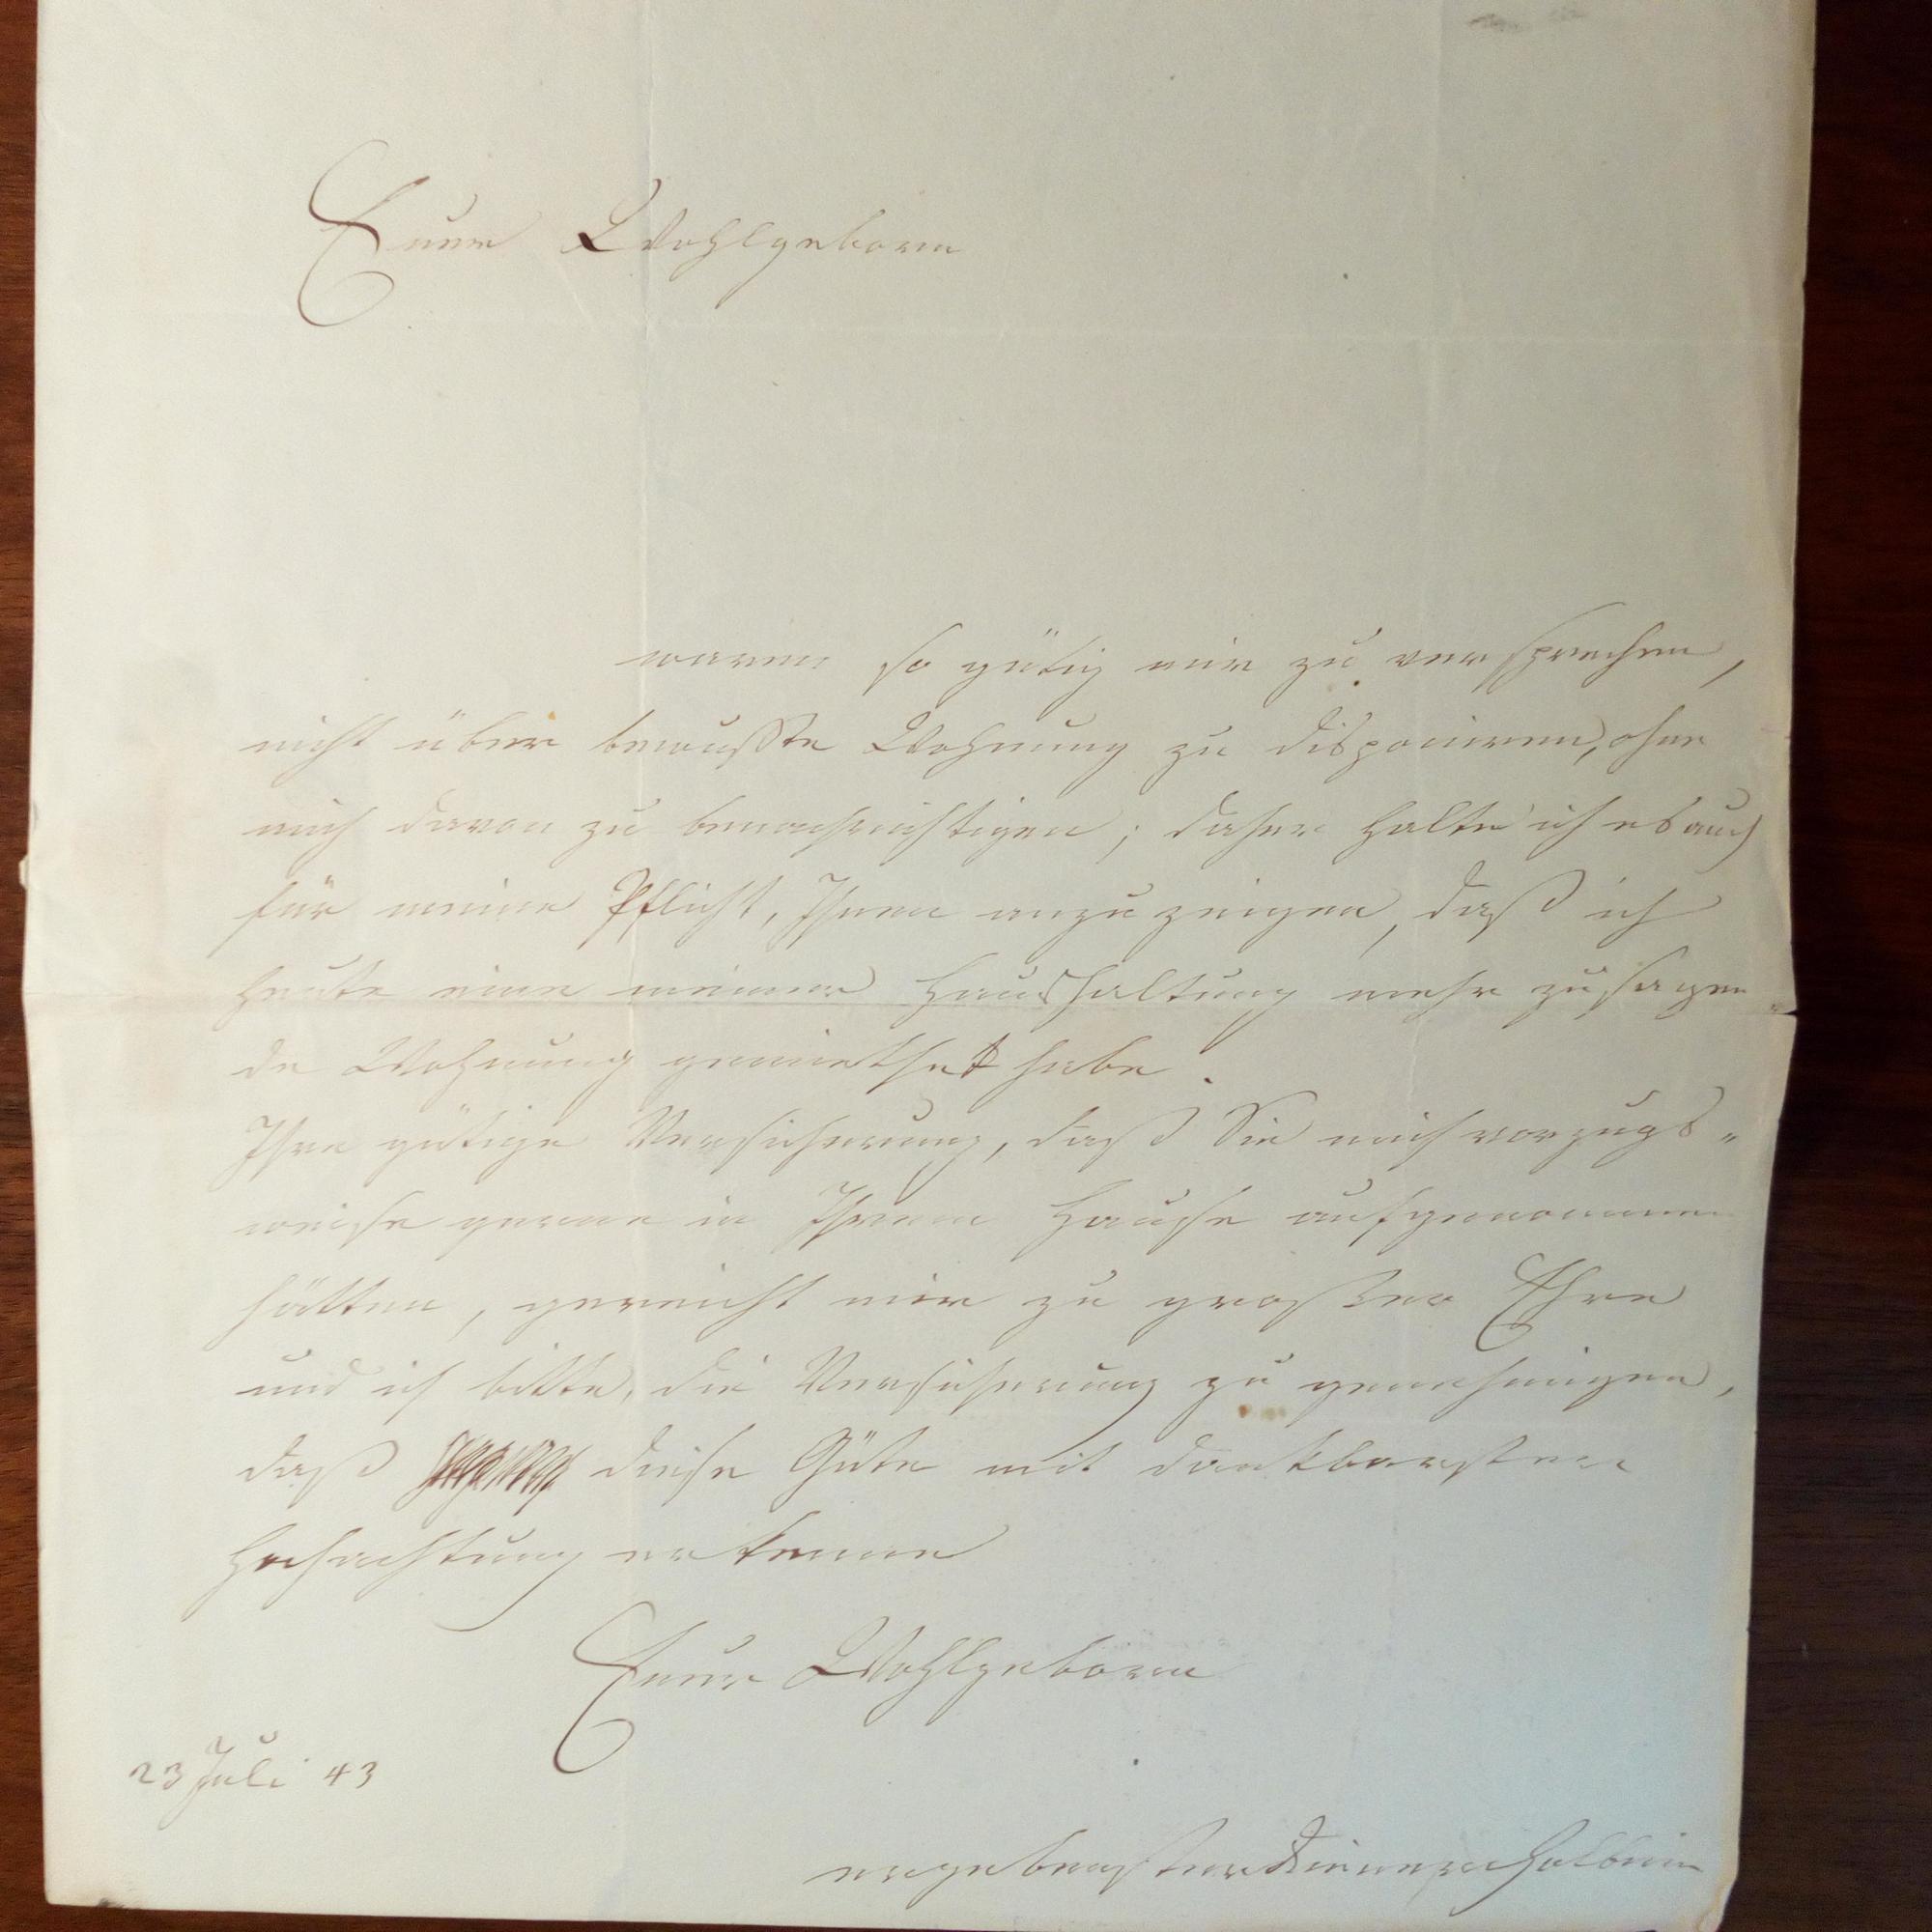 Euer Wohlgeboren
waren so gütig mir zu versprechen,
nicht über bewußte Wohnung zu disponieren, ohne
mich davon zu benachrichtigen; daher halte ich es auch
für meine Pflicht, Ihnen anzuzeigen, daß ich
heute eine meiner Haushaltung mehr zusagen„
de Wohnung gemiethet habe.
Ihre gütige Versicherung, daß Sie mich vorzugs„
weise gerne in Ihrem Hause aufgenommen
hätten, gereicht mir zu großer Ehre
und ich bitte, die Versicherung zu genehmigen,
daß diese Güte mit dankbarster
Hochachtung erkenne
Euer Wohlgeboren
23 Juli 43
ergebenster Diener Holbein